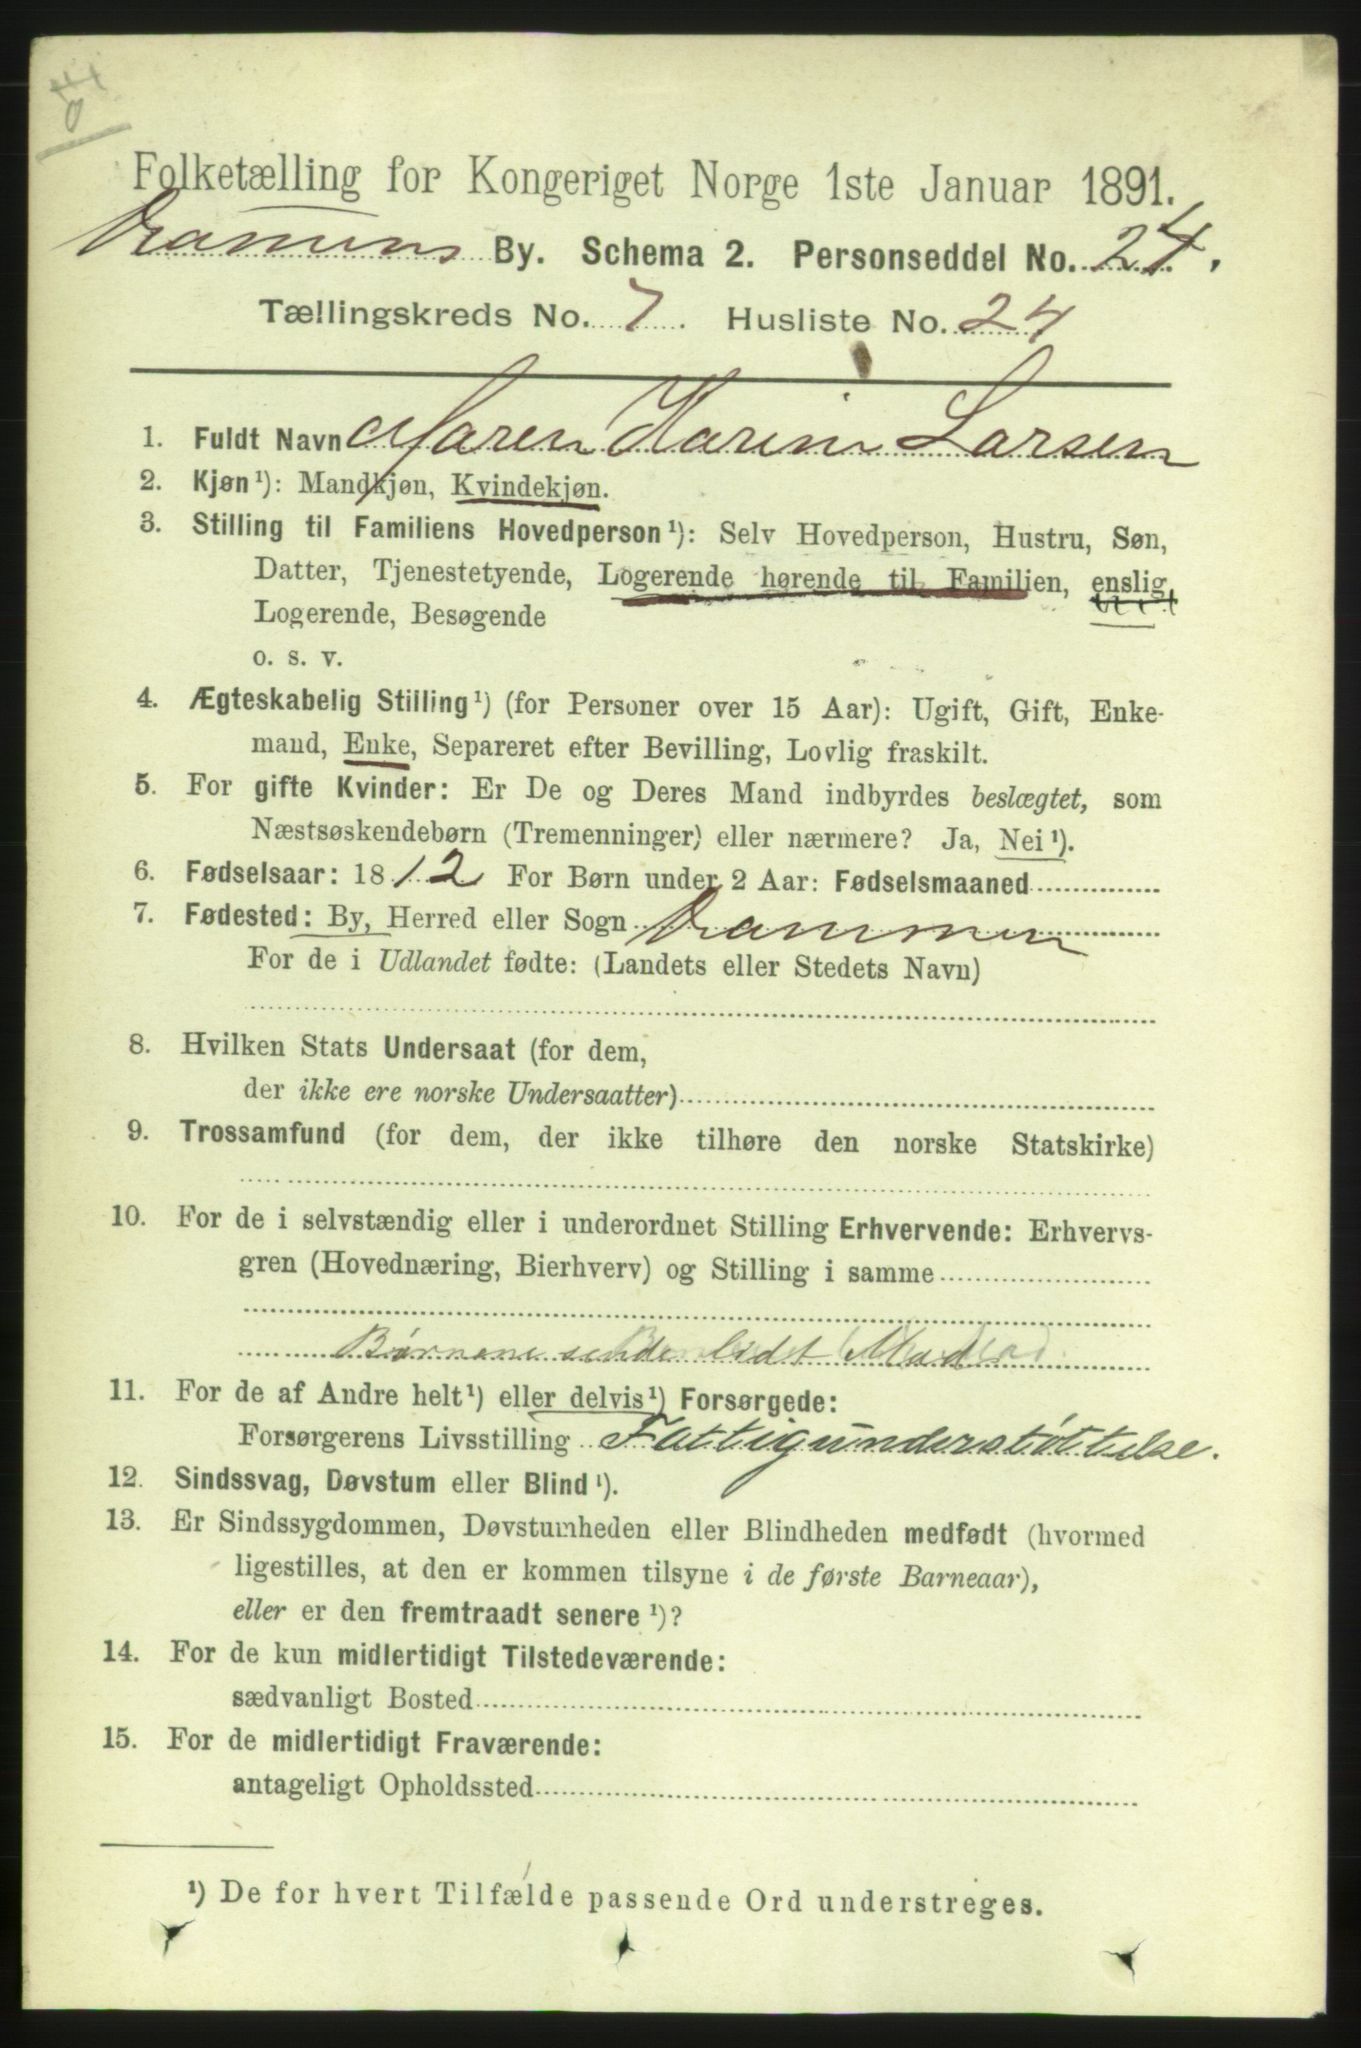 Folketælling for Kongeriget Norge 1ste Januar 1891.
Drammens By. Schema 2. Personseddel No. 24.
Tællingskreds No. 7. Husliste No. 24
1. Fuldt Navn Maren Karine Larsen
2. Kjøn¹): Mandkjøn, Kvindekjøn.
3. Stilling til Familiens Hovedperson¹): Selv Hovedperson, Hustru, Søn,
Datter, Tjenestetyende, Logerende hørende til Familien, enslig
Logerende, Besøgende
o. s. v.
4. Ægteskabelig Stilling¹) (for Personer over 15 Aar): Ugift, Gift, Enke-
mand, Enke, Separeret efter Bevilling, Lovlig fraskilt.
5. For gifte Kvinder: Er De og Deres Mand indbyrdes beslægtet, som
Næstsøskendebørn (Tremenninger) eller nærmere? Ja, Nei¹).
6. Fødselsaar: 1812 For Børn under 2 Aar: Fødselsmaaned
7. Fødested: By, Herred eller Sogn Drammen
For de i Udlandet fødte: (Landets eller Stedets Navn)
8. Hvilken Stats Undersaat (for dem,
der ikke ere norske Undersaatter)
9. Trossamfund (for dem, der ikke tilhøre den norske Statskirke)
10. For de i selvstændig eller i underordnet Stilling Erhvervende: Erhvervs-
gren (Hovednæring, Bierhverv) og Stilling i samme
Børnene sender lidt Mad
11. For de af Andre helt¹) eller delvis¹) Forsørgede:
Forsørgerens Livsstilling Fattigunderstøttelse.
12. Sindssvag, Døvstum eller Blind¹).
13. Er Sindssygdommen, Døvstumheden eller Blindheden medfødt (hvormed
ligestilles, at den er kommen tilsyne i de første Barneaar),
eller er den fremtraadt senere¹)?
14. For de kun midlertidigt Tilstedeværende:
sædvanligt Bosted
15. For de midlertidigt Fraværende:
antageligt Opholdssted
¹) De for hvert Tilfælde passende Ord understreges.